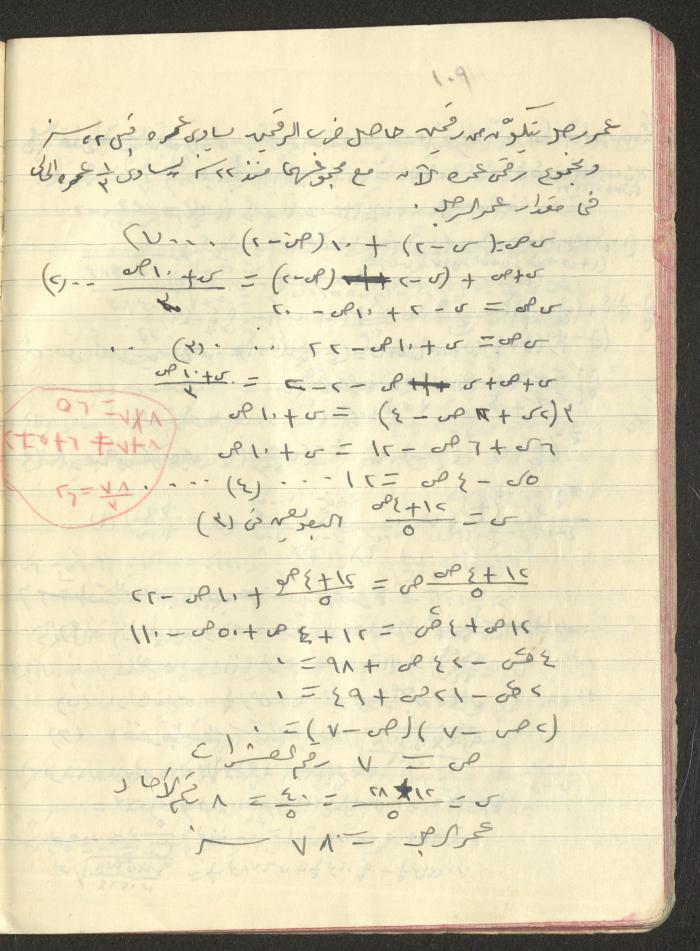 ١٠٩
عمر رجل يتكون من رقمين حاصل ضرب الرقمين يساوى عمره قبل ٢٢ سنة
ومجموع رقمى عمره الآن مع مجموعهما منذ ٢٢ سنة يساوى ١/٣ عمره الحالى
فما مقدار عمر الرجل .
س ص = (س - ٢) + ١٠ (ص - ٢) ٠٠٠٠ (١)
س + ص + (س - ٢) + (ص - ٢) = س + ١٠ ص / ٣ ٠٠٠ (٢)
س ص = س - ٢ + ١٠ ص - ٢٠
س ص = س + ١٠ ص - ٢٢ ٠٠٠٠ (٣) ٠٠
س + ص + س + ص - ٢ - ٢ = س + ١٠ ص / ٣
٣ (٢س + ٢ ص - ٤) = س + ١٠ ص
٦س + ٦ ص - ١٢ = س + ١٠ ص
٥س - ٤ ص = ١٢ ٠٠٠ (٤) ٠٠٠٠
س = ١٢ + ٤ ص / ٥ التعويض فى (٣)
١٢ + ٤ ص / ٥ ص = ١٢ + ٤ ص / ٥ + ١٠ ص - ٢٢
١٢ ص + ٤ ص٢ = ١٢ + ٤ ص + ٥٠ ص - ١١٠
٤ ص٢ - ٤٢ ص + ٩٨ = ٠
٢ ص٢ - ٢١ ص + ٤٩ = ٠
(٢ ص - ٧) (ص - ٧) = ٠
ص = ٧ رقم العشرات
س = ١٢ + ٢٨ / ٥ = ٤٠ / ٥ = ٨ رقم الآحاد
عمر الرجل = ٧٨ سنة
٧ × ٨ = ٥٦
٧٨ / ٣ = ٢٦